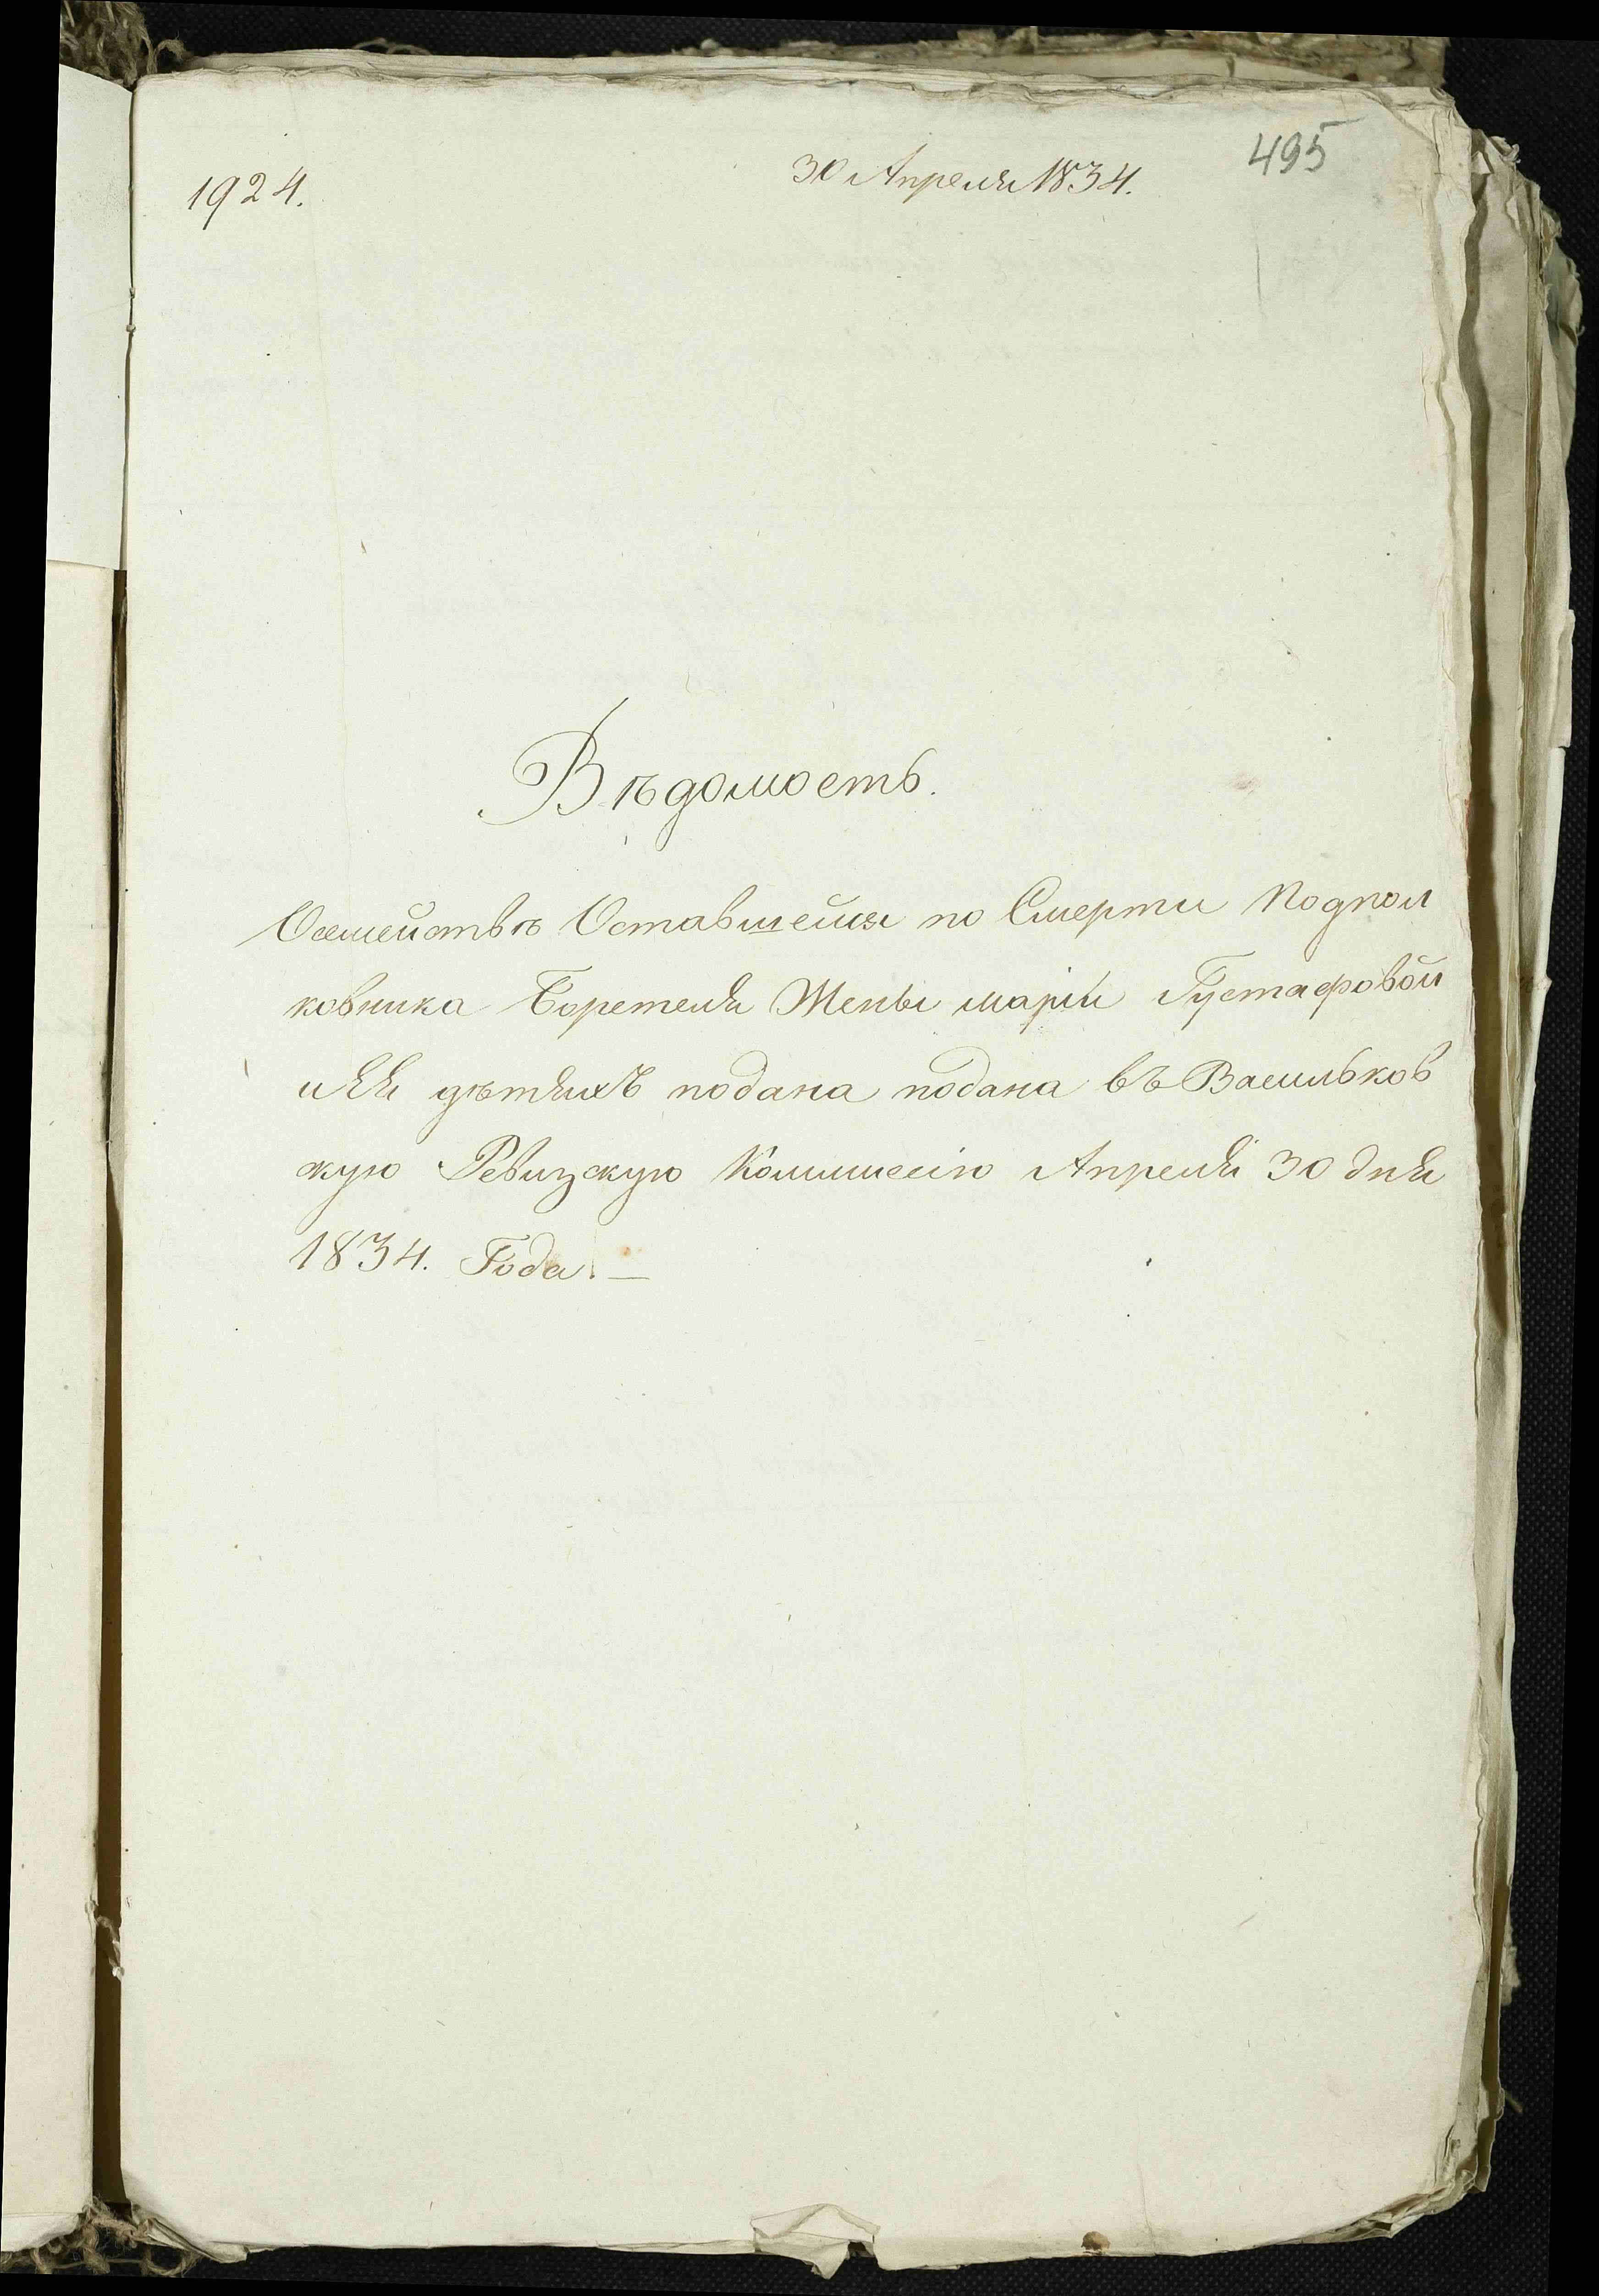 495
1924.
30 Апреля 1834.
Вѣдомость.
Осемействѣ Оставшейся по Смерти Подпол
ковника Боретеля Жены маріи Густафовой
и Ея дѣтяхъ подана подана въ Васильков
скую Ревизскую Коммиссію Апреля 30 дня
1834. Года. —